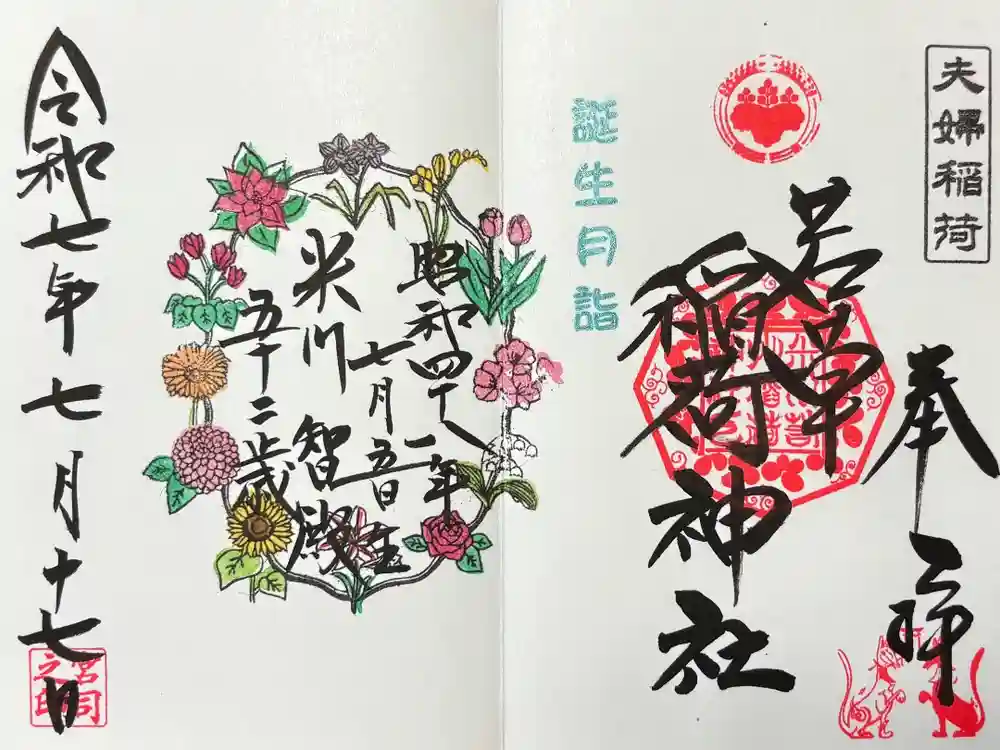 夫婦稲荷
奉拝
若草
稲荷神社
誕生月詣
昭和四十八年
七月五日生
米川 智
五十二歳
令和七年七月十七日
宮司
之印